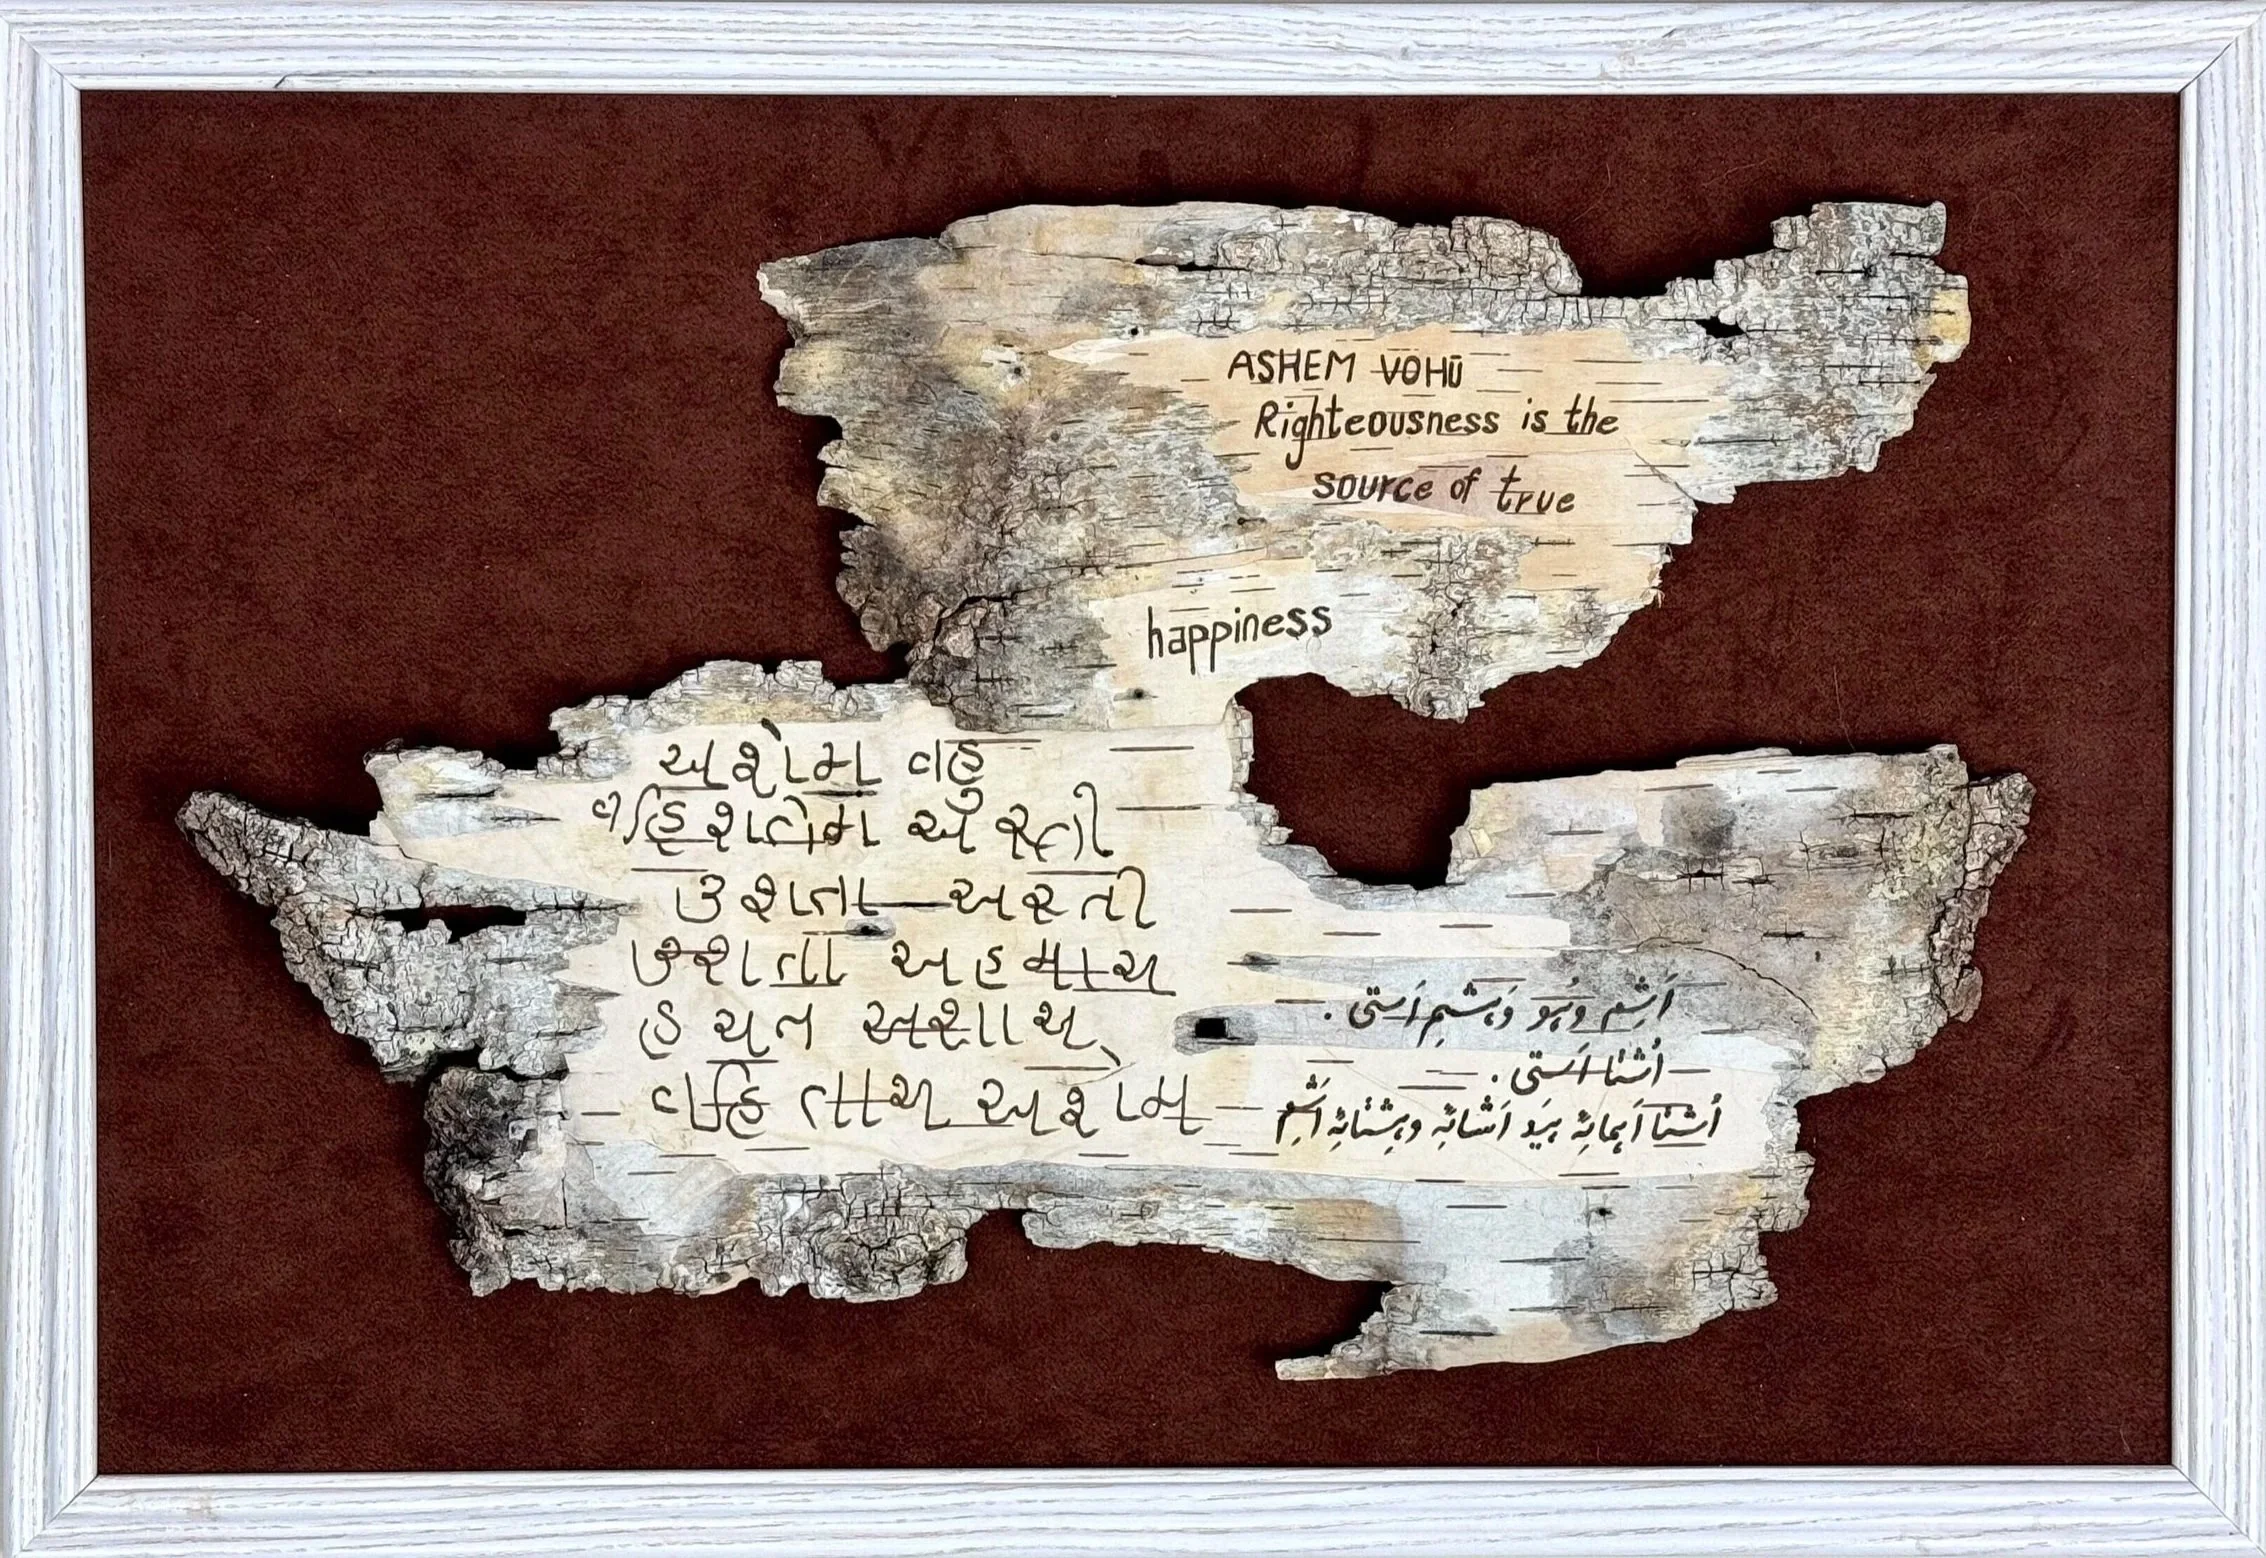 ASHEM VOHŪ
Righteousness is the
source of true
happiness
અશેમ વહુ
વહિશતેમ અસ્તી
ઉશતા અસ્તી
ઉશતા અહમાય
હયત અશાય
વહિતાય અશેમ
اَشِم وُهو وَهِشتِم اَستی.
اُشتا اَستی.
اُشتا اَهمائِه هیَد اَشائِه وهِشتائِه اَشِم